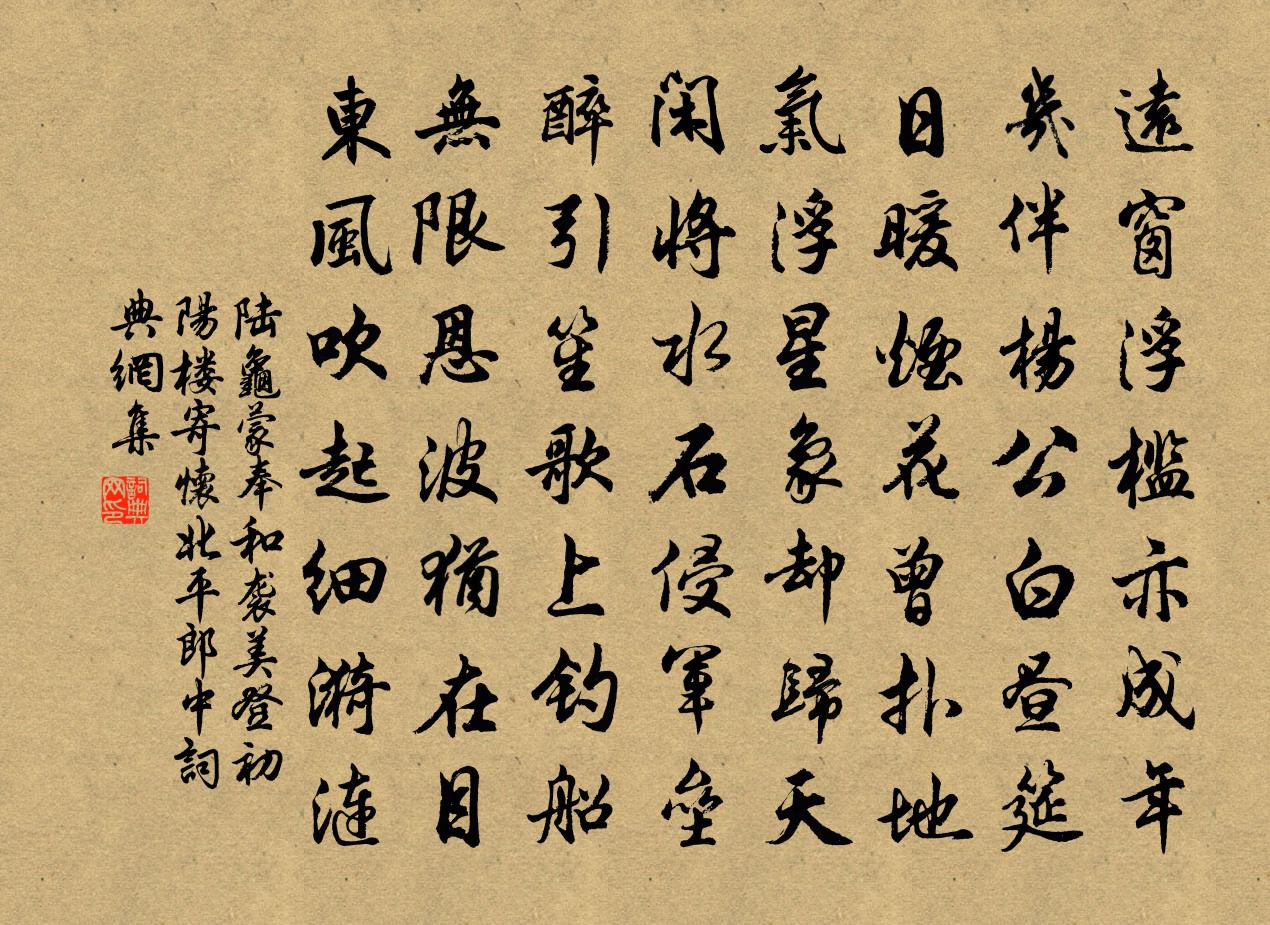 遠窗浮檻亦成年
幾伴楊公白晝筵
日暖煙花曾扑地
氣浮星象却歸天
閑將水石侵軍壘
醉引笙歌上釣船
無限恩波猶在目
東風吹起細漪漣
陆龜蒙奉和袭美登初
陽楼寄懷北平郎中詞
典網集
詞典网印